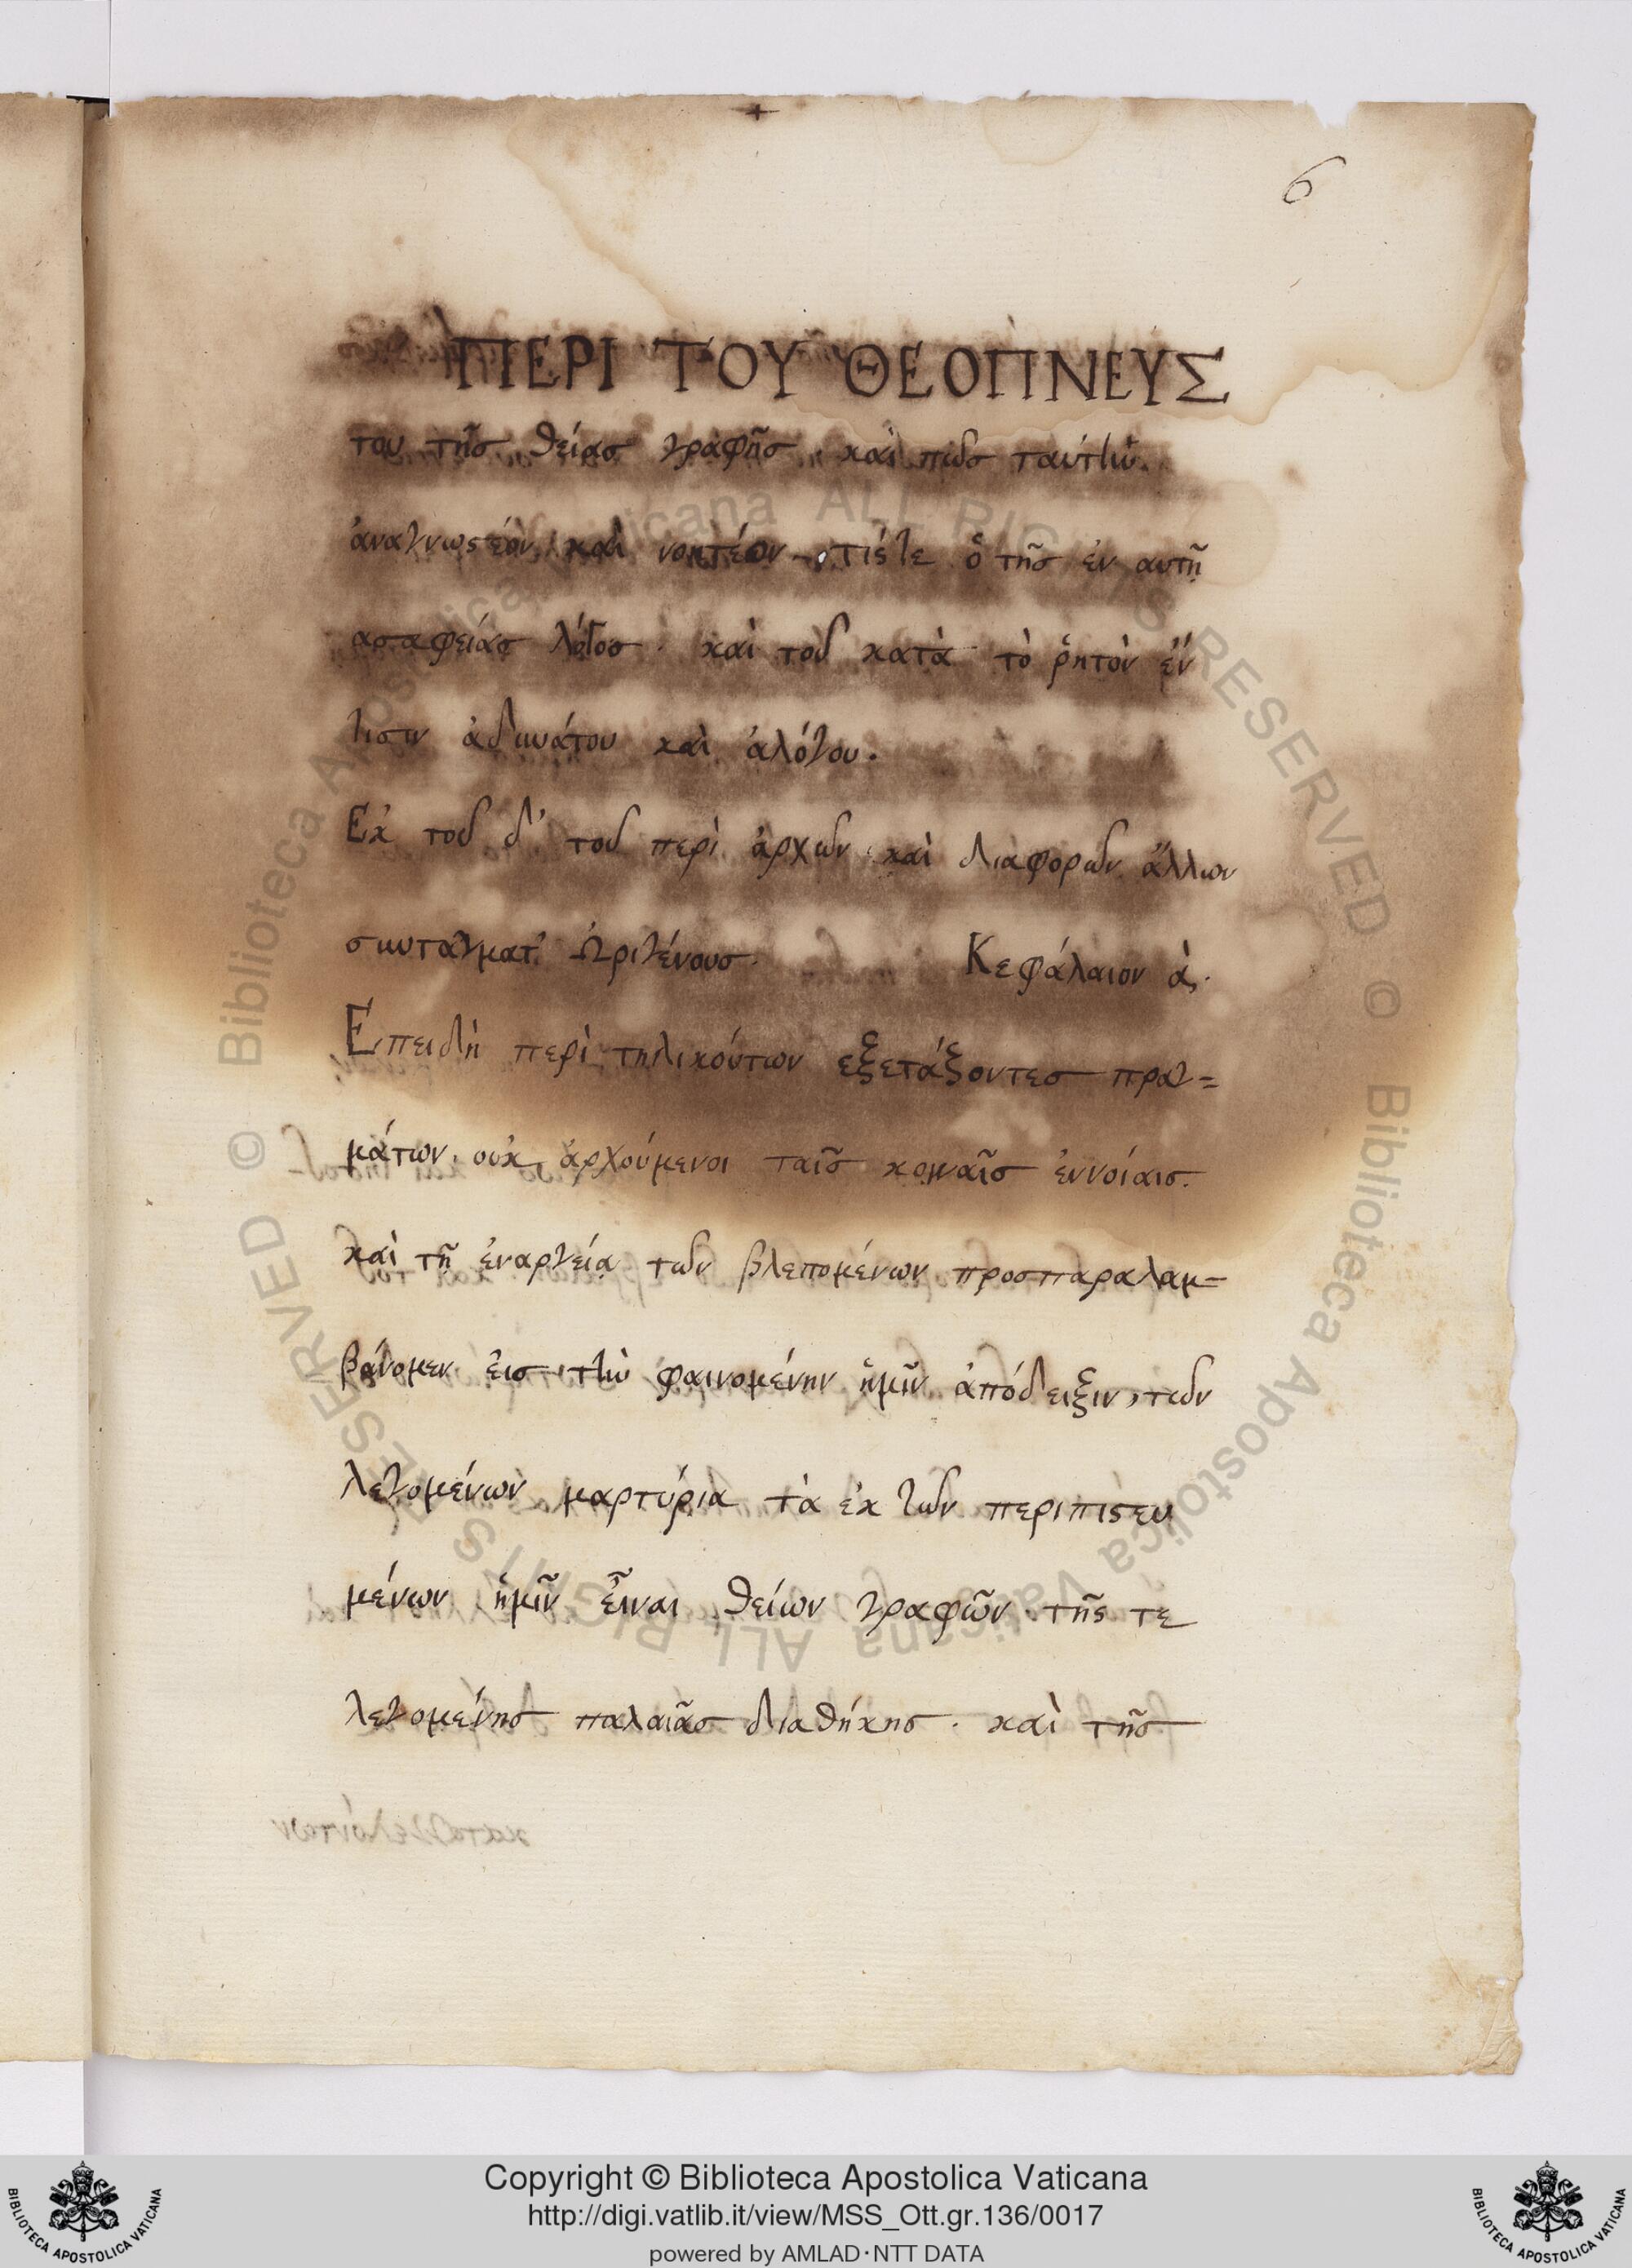 6
ΠΕΡΙ ΤΟΥ ΘΕΟΠΝΕΥΣ
του τῆσ θείασ γραφῆσ. καὶ πῶσ ταύτὴν
ἀναγνωστέον, καὶ νοητέον. τίς τε ὁ τῆσ ἐν αυτῆ
ασαφείασ λόγοσ. καὶ τοῦ κατὰ τὸ ῥητὸν ἐν
τισιν ἀδυνάτου καὶ ἀλόγου.
Εκ τοῦ δ' τοῦ περὶ ἀρχῶν καὶ διαφορῶν ἄλλων
συνταγματ Ὠριγένουσ. Κεφάλαιον ὰ.
Επειδὴ περὶ τηλικούτων εξετάξοντεσ πραγ=
μάτων. ουκ ἀρχούμενοι ταῖσ κοιναῖσ ἐννοίαισ.
καὶ τῆ ἐναργεία τῶν βλεπομένων προσπαραλαμ-
βάνομεν ἐισ τὴν φαινομένην ἡμῖν ἀπόδειξιν, τῶν
λεγομένων μαρτύρια τὰ ἐκ τῶν περιπιστευ
μένων ἡμῖν εἶναι θείων γραφῶν. τῆς τε
λεγομένησ παλαιᾶσ διαθήκησ. καὶ τῆσ
© Biblioteca Apostolica Vaticana ALL RIGHTS RESERVED
© Biblioteca Apostolica Vaticana ALL RIGHTS RESERVED
Copyright © Biblioteca Apostolica Vaticana
http://digi.vatlib.it/view/MSS_Ott.gr.136/0017
powered by AMLAD·NTT DATA
BIBLIOTECA APOSTOLICA VATICANA
BIBLIOTECA APOSTOLICA VATICANA